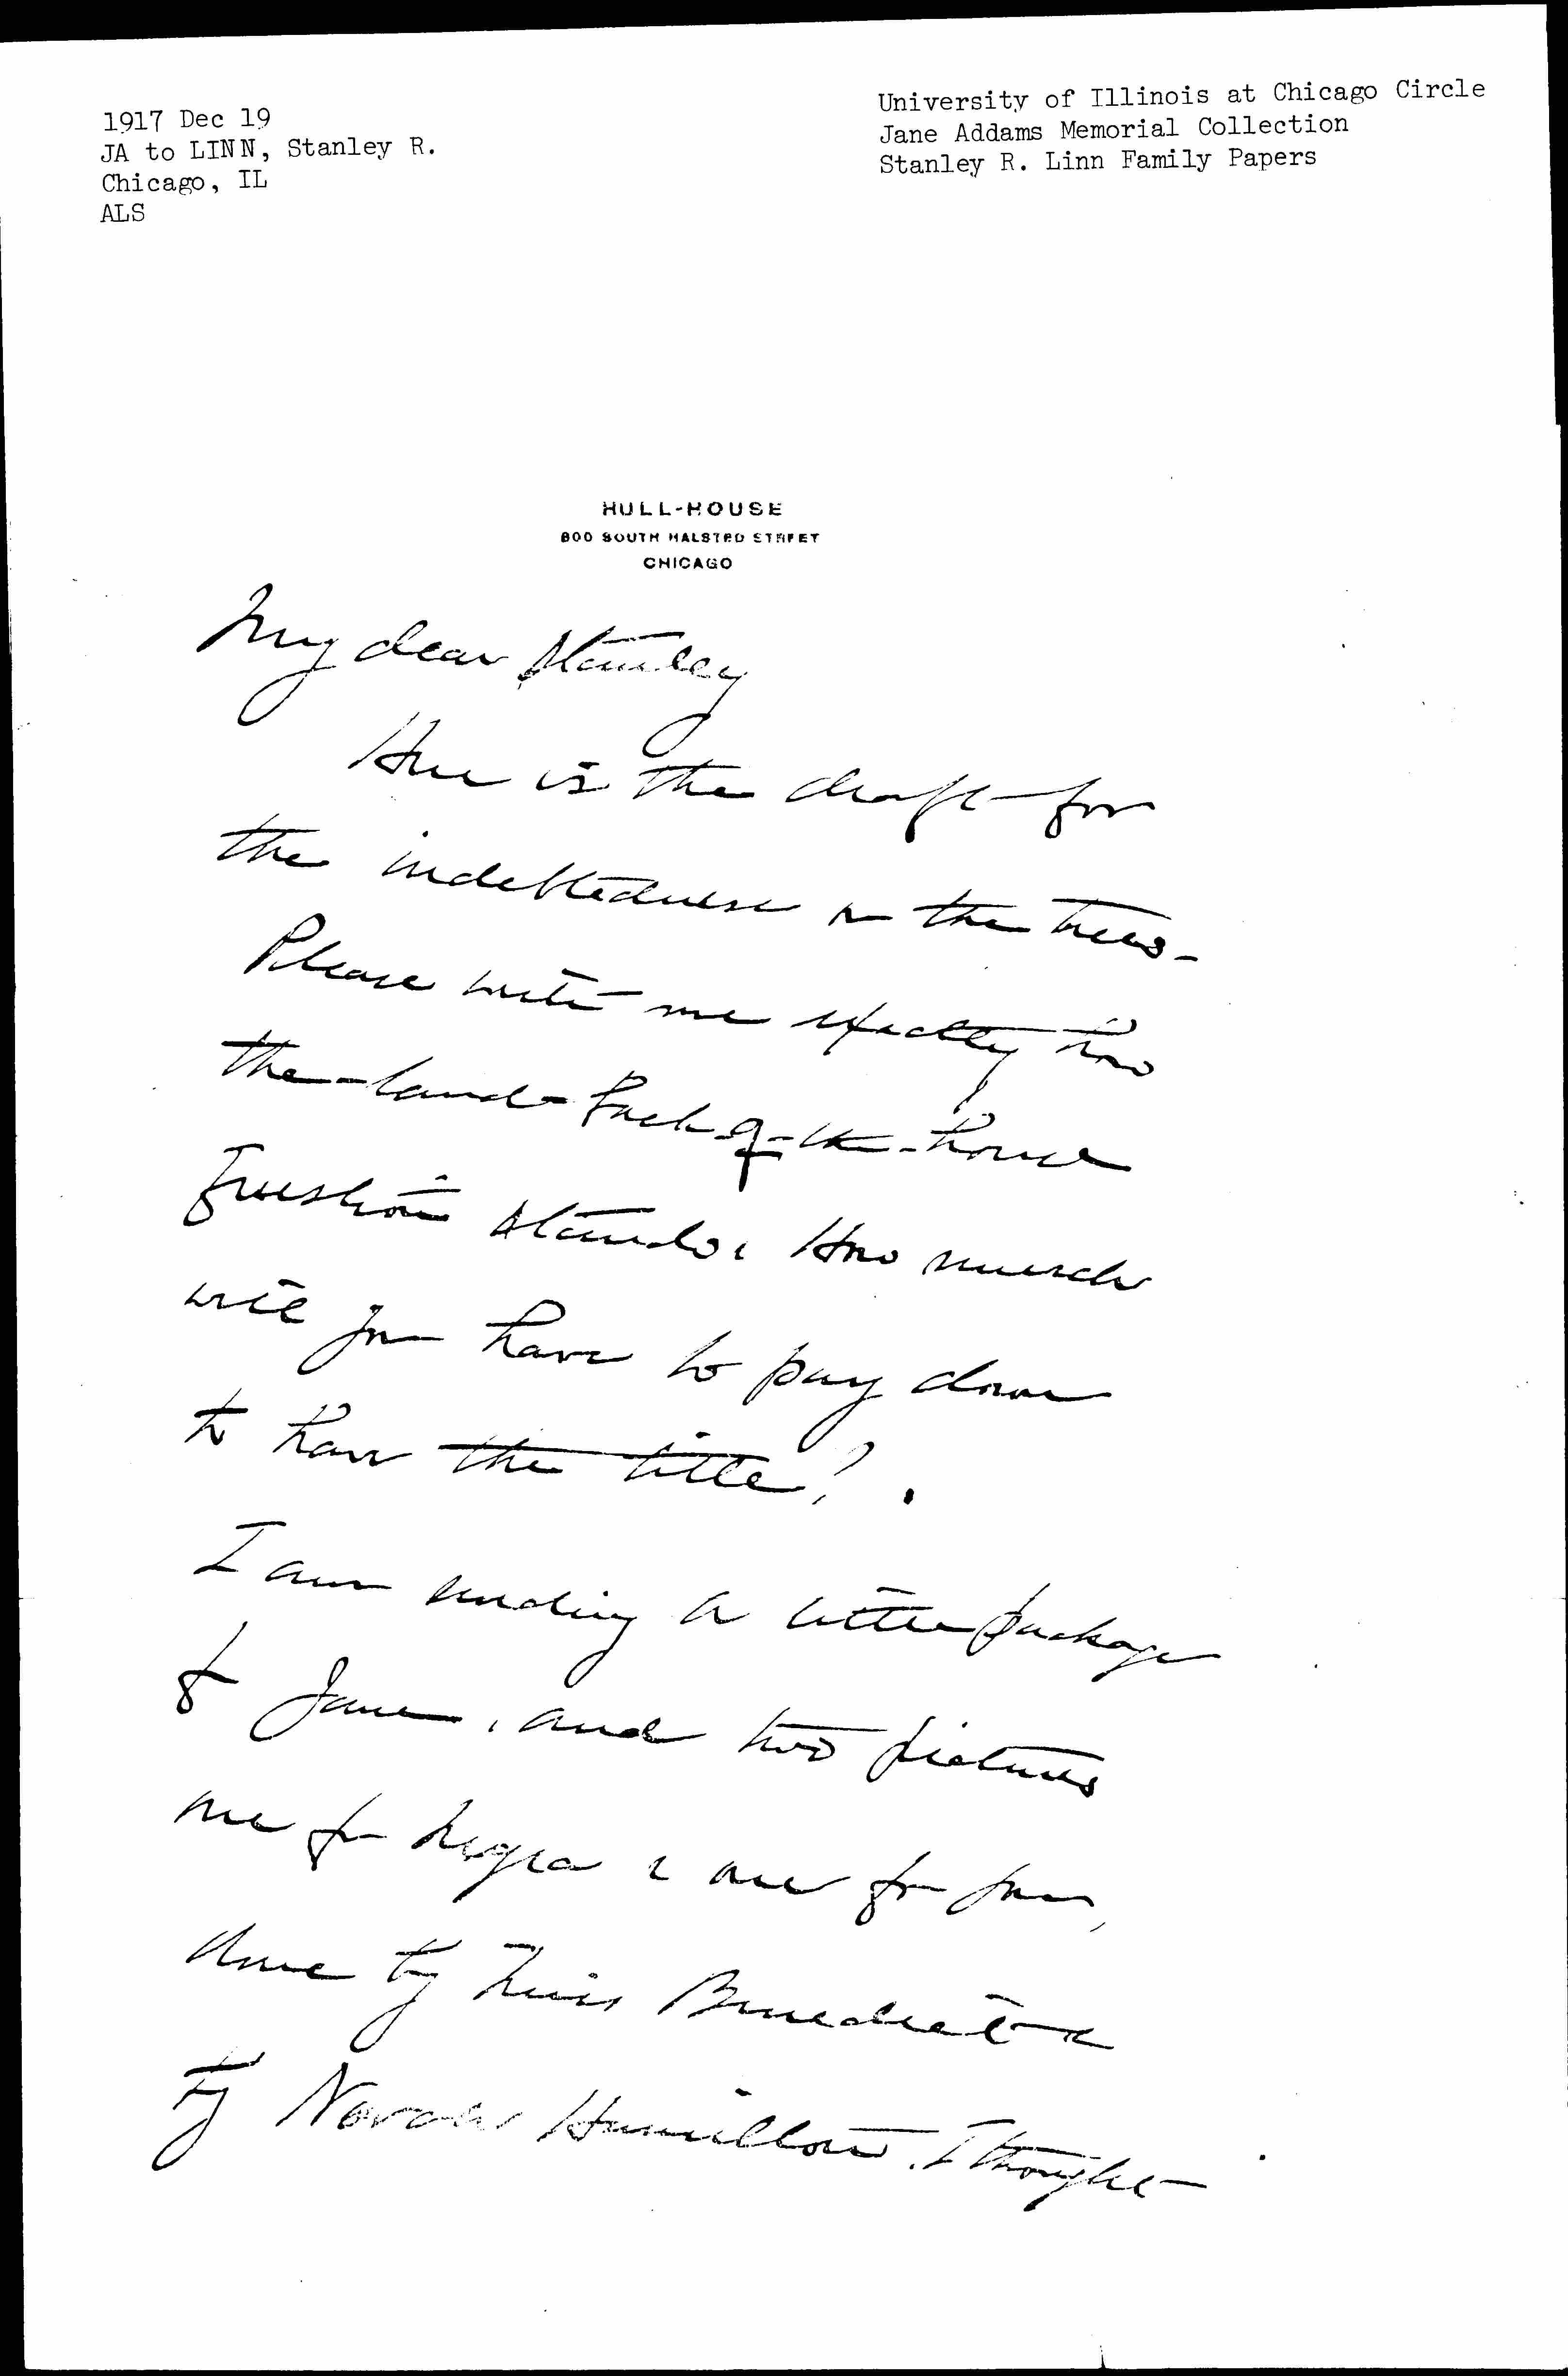 1917 Dec 19
JA to LINN, Stanley R.
Chicago, IL
ALS
University of Illinois at Chicago Circle
Jane Addams Memorial Collection
Stanley R. Linn Family Papers
HULL-HOUSE
800 SOUTH HALSTED STREET
CHICAGO
My dear Stanley
Here is the draft for
the indebtedness on the trees -
Please write me exactly how
the - land - back - of - the - house
question stands. How much
will you have to pay down
to have the title?
I am sending a little package
to Jane, and two pictures
one for Myra & one for you,
done by Miss Benedict &
by Norah Hamilton. I thought